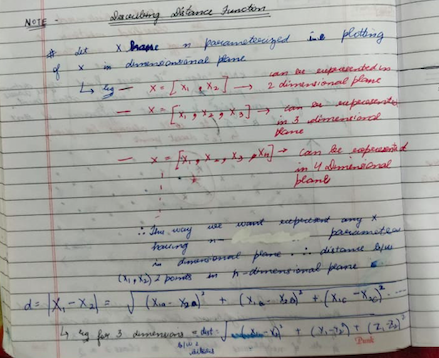 NOTE :- Describing Distance Function
# let X have n parameterized i.e plotting
of X in dimensional plane
↳ eg — X = [X₁, X₂] → can be represented in
2 dimensional plane
— X = [X₁, X₂, X₃] → can be represented
in 3 dimensional
plane
— X = [X₁, X₂, X₃, X₄] → can be represented
in 4 dimensional
plane
∴ This way we want represent any X
having n- parameters
in dimensional plane ∴ distance b/w
(X₁, X₂) 2 points in n-dimensional plane
d = |X₁ - X₂| = √ (X₁ₐ - X₂ₐ)² + (X₁ - X₂)² + (X₁c - X₂c)² ....
↳ eg for 3 dimensions = dist √ + (Y₁ - Y₂)² + (Z₁ Z₂)²
b/w 2